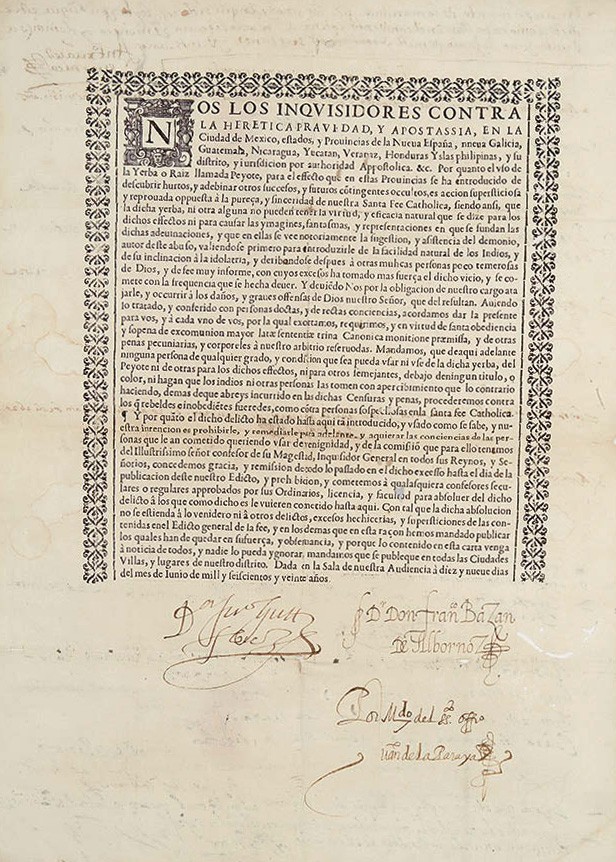 NOS LOS INQVISIDORES CONTRA
LA HERETICA PRAVIDAD, Y APOSTASSIA, EN LA
Ciudad de Mexico, estados, y Prouincias de la Nueua España, nueua Galicia,
Guatemala, Nicaragua, Yucatan, Verapaz, Honduras Yslas philipinas, y su
distrito, y iurisdicion por authoridad Appostolica. &c. Por quanto el vso de
la Yerba o Raiz llamada Peyote, para el effecto que en estas Prouincias se ha introducido de
descubrir hurtos, y adebinar otros sucessos, y futuros cõtingentes occultos, es accion supersticiosa
y reprouada oppuesta à la pureça, y sinceridad de nuestra Santa Fee Catholica, siendo ansi, que
la dicha yerba, ni otra alguna no pueden tener la virtud, y eficacia natural que se dize para los
dichos effectos ni para causar las ymagines, fantasmas, y representaciones en que se fundan las
dichas adeuinaciones, y que en ellas se vee notoriamente la sugestion, y asistencia del demonio,
autor deste abuso, valiendose primero para introduzirle de la facilidad natural de los Indios, y
de su inclinacion à la idolatria, y deribandose despues à otras muchas personas poco temerosas
de Dios, y de fee muy informe, con cuyos excesos ha tomado mas fuerça el dicho vicio, y se co-
mete con la frequencia que se hecha deuer. Y deuiẽdo Nos por la obligacion de nuestro cargo ata
jarle, y occurrir à los daños, y graues offensas de Dios nuestro Señor, que del resultan. Auiendo
lo tratado, y conferido con personas doctas, y de rectas conciencias, acordamos dar la presente
para vos, y à cada vno de vos, por la qual exortamos, requirimos, y en virtud de santa obediencia
y sopena de excomunion mayor latæ sententiæ trina Canonica monitione præmissa, y de otras
penas pecuniarias, y corporeles à nuestro arbitrio reseruadas. Mandamos, que de aqui adelante
ninguna persona de qualquier grado, y condicion que sea pueda vsar ni vse de la dicha yerba, del
Peyote ni de otras para los dichos effectos, ni para otros semejantes, debajo de ningun titulo, o
color, ni hagan que los indios ni otras personas las tomen con apercibimiento que lo contrario
haciendo, demas de que abreys incurrido en las dichas Censuras y penas, procederemos contra
los q̃ rebeldes e inobediẽtes fueredes, como cõtra personas sospechosas en la santa fee Catholica.
¶ Y por quãto el dicho delicto ha estado hasta aqui tã introducido, y vsado como se sabe, y nu-
estra intencion es prohibirle, y remediarle para adelante, y aquietar las conciencias de las per-
sonas que le an cometido queriendo vsar de venignidad, y de la comissiõ que para ello tenemos
del Illustrissimo señor confesor de su Magestad, Inquisidor General en todos sus Reynos, y Se-
ñorios, concedemos gracia, y remission de todo lo passado en el dicho excesso hasta el dia de la
publicacion deste nuestro Edicto, y prohibicion, y cometemos à qualasquiera confesores secu-
lares o regulares approbados por sus Ordinarios, licencia, y facultad para absoluer del dicho
delicto à los que como dicho es le vuieren cometido hasta aqui. Con tal que la dicha absolucion
no se estienda à lo venidero ni à otros delictos, excesos hechicerias, y supersticiones de las con-
tenidas en el Edicto general de la fee, y en los demas que en esta raçon hemos mandado publicar
los quales han de quedar en su fuerça, y obseruancia, y porque lo contenido en esta carta venga
à noticia de todos, y nadie lo pueda ygnorar, mandamos que se publeque en todas las Ciudades
Villas, y lugares de nuestro distrito. Dada en la Sala de nuestra Audiencia à diez y nueue dias
del mes de Iunio de mill y seiscientos y veinte años.
Dr. Don Franco Bazan
De Albornoz
Por Mdo del sto offo